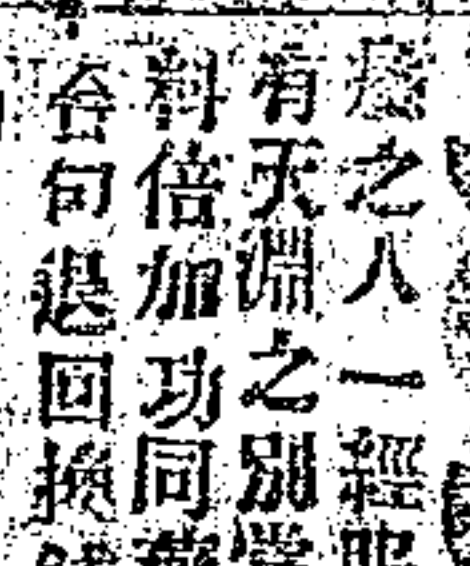 之人一經
有天淵之別
料倍加功同
合句退回換